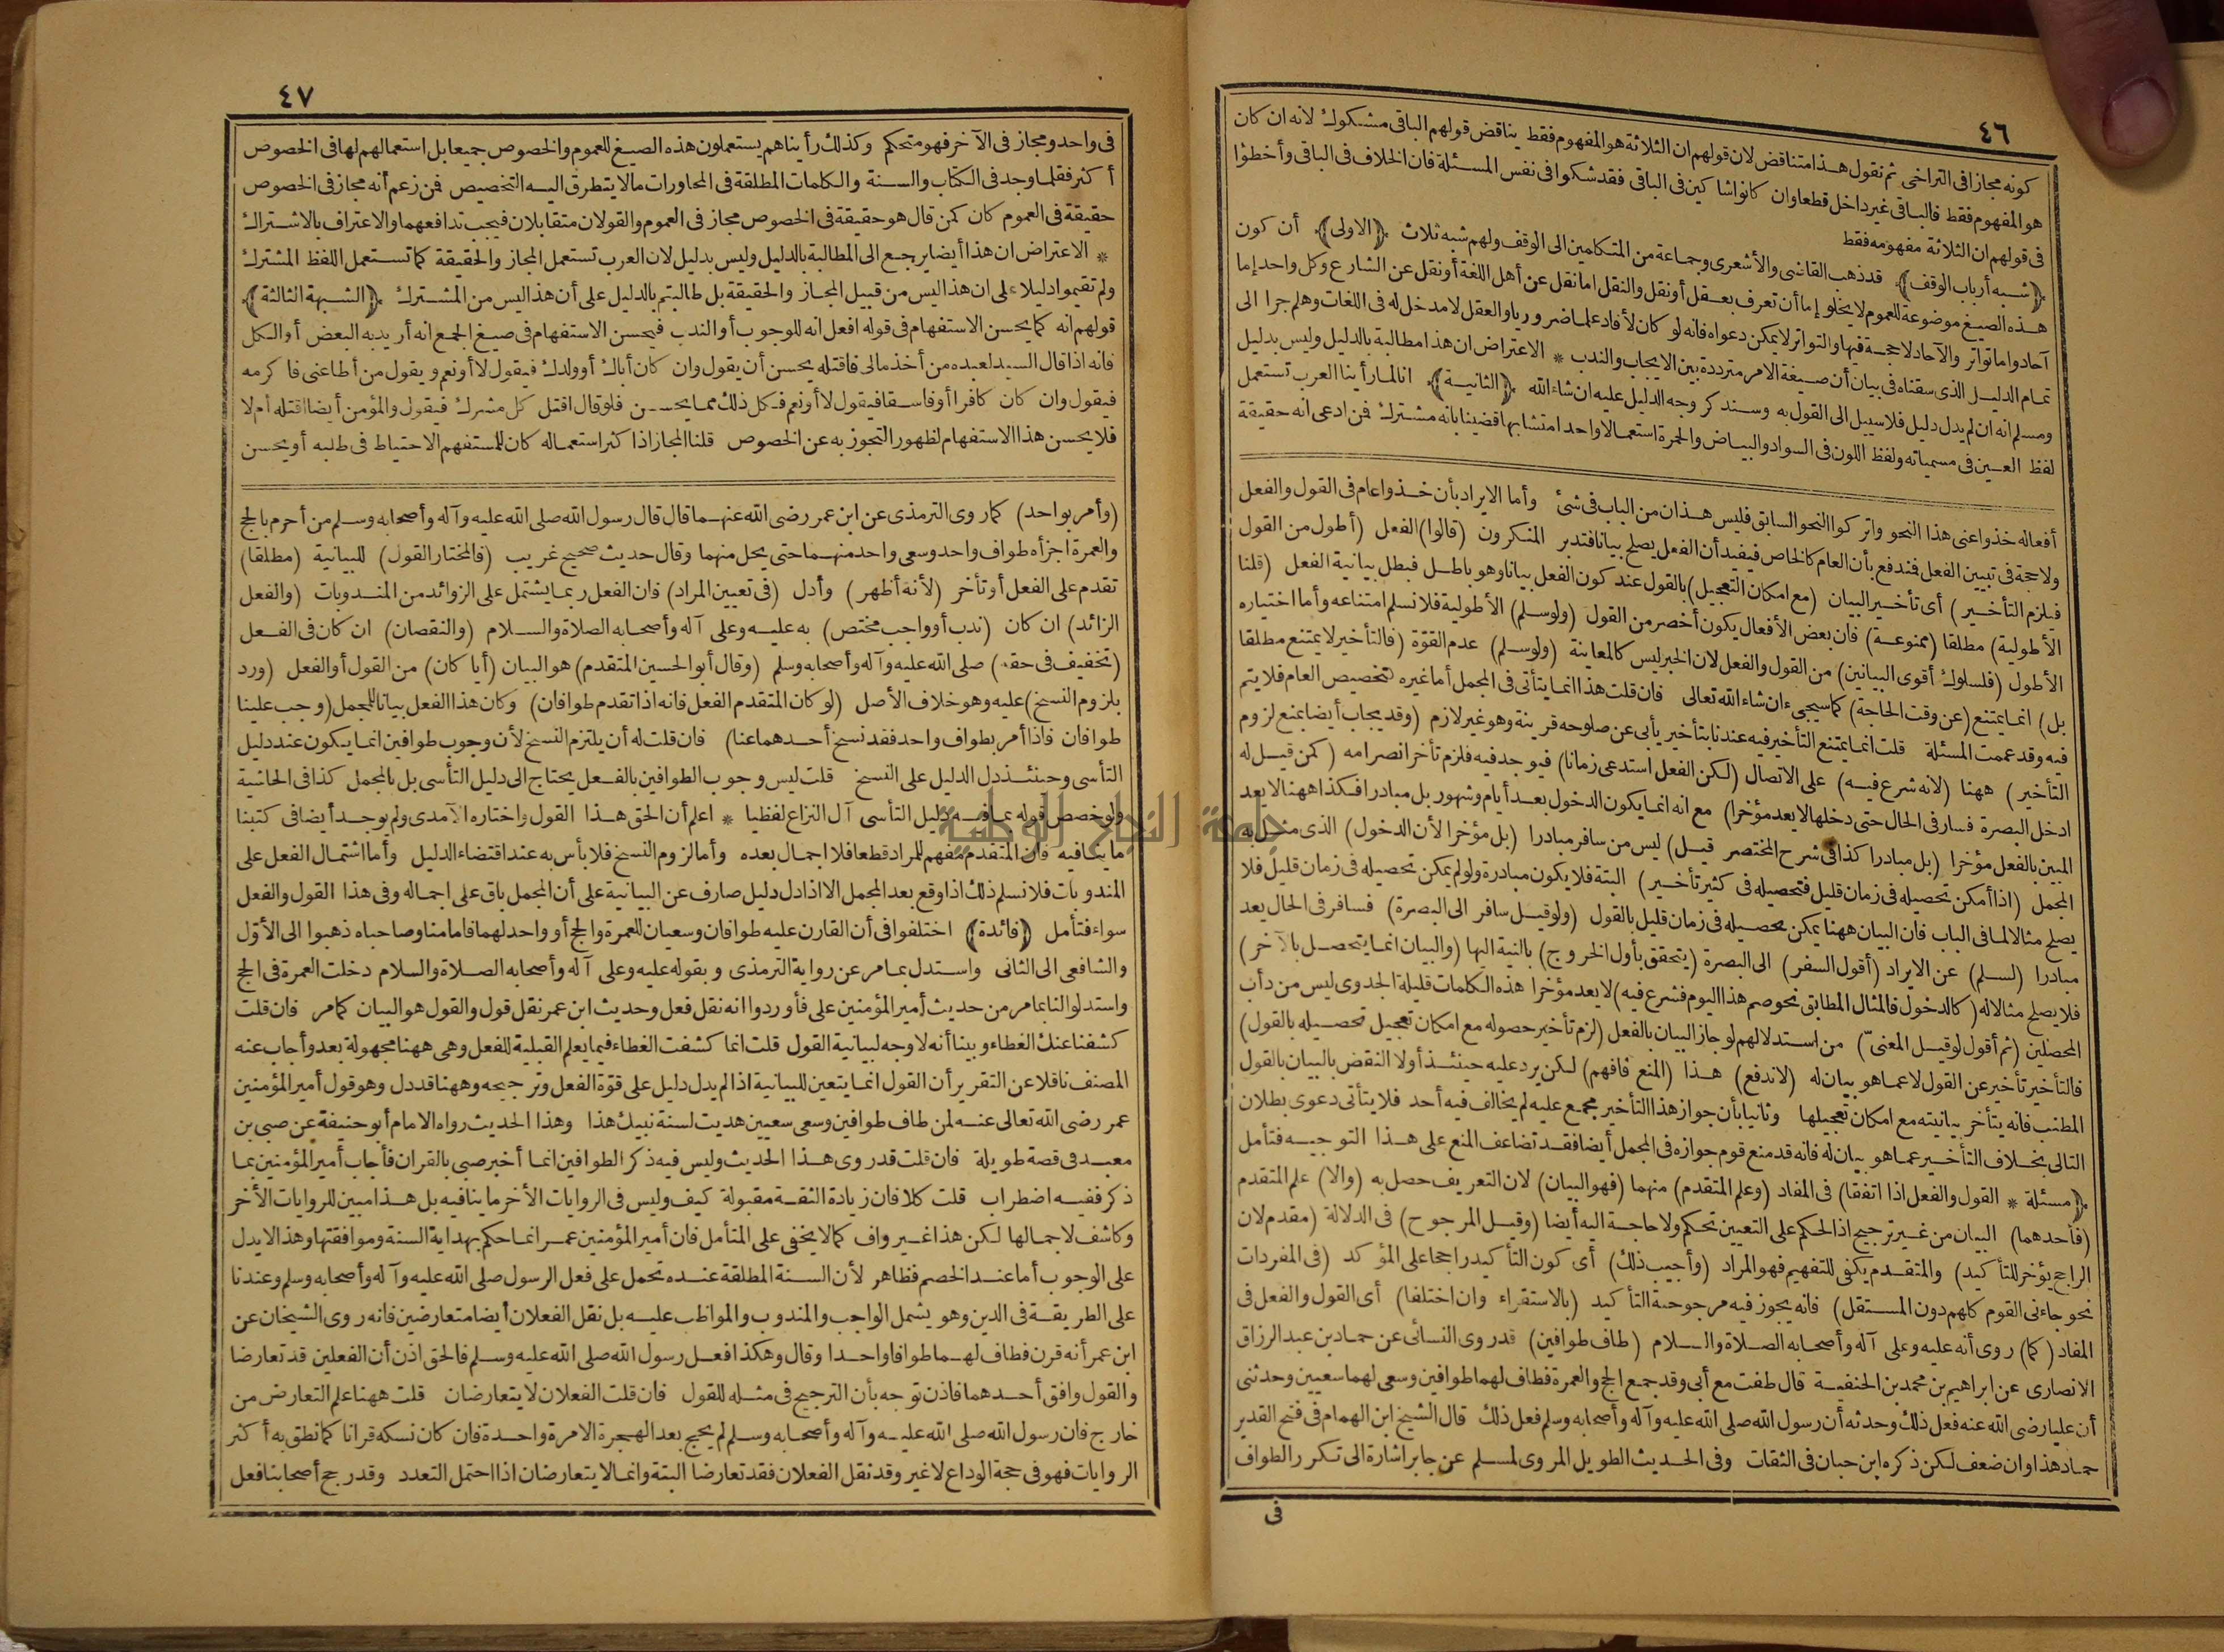 ٤٦
كونه مجازا في التراخي ثم نقول هذا متناقض لان قولهم ان الثلاثة هو المفهوم فقط يناقض قولهم الباقي مشكوك لانه ان كان
هو المفهوم فقط فالباقي غير داخل قطعا وان كانوا شاكين في الباقي فقد شكوا في نفس المسئلة فان الخلاف في الباقي وأخطؤا
في قولهم ان الثلاثة مفهومه فقط
﴿شبه أرباب الوقف﴾ قد ذهب القاضي والأشعري وجماعة من المتكلمين الى الوقف ولهم شبه ثلاث ﴿الاولى﴾ أن كون
هذه الصيغ موضوعة للعموم لا يخلو إما أن تعرف بعقل أو نقل والنقل اما نقل عن أهل اللغة أو نقل عن الشارع وكل واحد إما
آحاد واما تواتر والآحاد لا حجة فيها والتواتر لا يمكن دعواه فانه لو كان لأفاد علما ضروريا والعقل لا مدخل له في اللغات وهلم جرا الى
تمام الدليل الذي سقناه في بيان أن صيغة الامر مترددة بين الايجاب والندب * الاعتراض ان هذا مطالبة بالدليل وليس بدليل
ومسلم انه ان لم يدل دليل فلا سبيل الى القول به وسنذكر وجه الدليل عليه ان شاء الله ﴿الثانية﴾ انا لما رأينا العرب تستعمل
لفظ العين في مسمياته ولفظ اللون في السواد والبياض والحمرة استعمالا واحدا متشابها قضينا بانه مشترك فمن ادعى انه حقيقة
أفعاله خذوا عني هذا النحو واتركوا النحو السابق فليس هذان من الباب في شئ وأما الايراد بأن خذوا عام في القول والفعل
ولا حجة في تبيين الفعل فندفع بأن العام كالخاص فيفيد أن الفعل يصلح بيانا فتدبر المنكرون (قالوا) الفعل (أطول من القول
فيلزم التأخير) أي تأخير البيان (مع امكان التعجيل) بالقول عند كون الفعل بيانا وهو باطل فبطل بيانية الفعل (قلنا
الأطولية) مطلقا (ممنوعة) فان بعض الأفعال يكون أخصر من القول (ولو سلم) الأطولية فلا نسلم امتناعه وأما اختياره
الأطول (فلسلوك أقوى البيانين) من القول والفعل لان الخبر ليس كالمعاينة (ولو سلم) عدم القوة (فالتأخير لا يمتنع مطلقا
بل) انما يمتنع (عن وقت الحاجة) كما سيجيء ان شاء الله تعالى فان قلت هذا انما يتأتى في المجمل أما غيره كتخصيص العام فلا يتم
فيه وقد عممت المسئلة قلت انما يمتنع التأخير فيه عندنا بتأخير يأبى عن صلوحه قرينة وهو غير لازم (وقد يجاب أيضا بمنع لزوم
التأخير) ههنا (لانه شرع فيه) على الاتصال (لكن الفعل استدعى زمانا) فيوجد فيه فلزم تأخر انصرامه (كمن قيل له
ادخل البصرة فسار في الحال حتى دخلها لا يعد مؤخرا) مع انه انما يكون الدخول بعد أيام وشهور بل مبادرا فكذا ههنا لا يعد
المبين بالفعل مؤخرا (بل مبادرا كذا في شرح المختصر قيل) ليس من سافر مبادرا (بل مؤخرا لأن الدخول) الذي مثل به
المجمل (اذا أمكن تحصيله في زمان قليل فتحصيله في كثير تأخير) البتة فلا يكون مبادرة ولو لم يمكن تحصيله في زمان قليل فلا
يصلح مثالا لما في الباب فان البيان ههنا يمكن تحصيله في زمان قليل بالقول (ولو قيل سافر الى البصرة) فسافر في الحال يعد
مبادرا (لسلم) عن الايراد (أقول السفر) الى البصرة (يتحقق بأول الخروج) بالنية اليها (والبيان انما يتحصل بالآخر)
فلا يصلح مثالا له (كالدخول فالمثال المطابق نحو صم هذا اليوم فشرع فيه) لا يعد مؤخرا هذه الكلمات قليلة الجدوى ليس من دأب
المحصلين (ثم أقول لو قيل المعنى) من استدلالهم لو جاز البيان بالفعل (لزم تأخير حصوله مع امكان تعجيل تحصيله بالقول)
فالتأخير تأخير عن القول لا عما هو بيان له (لاندفع) هذا (المنع فافهم) لكن يرد عليه حينئذ أولا النقض بالبيان بالقول
المطنب فانه يتأخر بيانيته مع امكان تعجيلها وثانيا بأن جواز هذا التأخير مجمع عليه لم يخالف فيه أحد فلا يتأتى دعوى بطلان
التالي بخلاف التأخير عما هو بيان له فانه قد منع قوم جوازه في المجمل أيضا فقد تضاعف المنع على هذا التوجيه فتأمل
﴿مسئلة * القول والفعل اذا اتفقا) في المفاد (وعلم المتقدم) منهما (فهو البيان) لان التعريف حصل به (والا) علم المتقدم
(فأحدهما) البيان من غير ترجيح اذ الحكم على التعيين تحكم ولا حاجة اليه أيضا (وقيل المرجوح) في الدلالة (مقدم لان
الراجح يؤخر للتأكيد) والمتقدم يكفي للتفهيم فهو المراد (وأجيب ذلك) أي كون التأكيد راجحا على المؤكد (في المفردات
نحو جاءني القوم كلهم دون المستقل) فانه يجوز فيه مرجوحية التأكيد (بالاستقراء وان اختلفا) أي القول والفعل في
المفاد (كما) روى أنه عليه وعلى آله وأصحابه الصلاة والسلام (طاف طوافين) قد روى النسائي عن حماد بن عبد الرزاق
الانصاري عن ابراهيم بن محمد بن الحنفية قال طفت مع أبي وقد جمع الحج والعمرة فطاف لهما طوافين وسعى لهما سعيين وحدثني
أن عليا رضي الله عنه فعل ذلك وحدثه أن رسول الله صلى الله عليه وآله وأصحابه وسلم فعل ذلك قال الشيخ ابن الهمام في فتح القدير
حماد هذا وان ضعف لكن ذكره ابن حبان في الثقات وفي الحديث الطويل المروي لمسلم عن جابر اشارة الى تكرر الطواف
في
٤٧
في واحد ومجاز في الآخر فهو متحكم وكذلك رأيناهم يستعملون هذه الصيغ للعموم والخصوص جميعا بل استعمالهم لها في الخصوص
أكثر فقلما وجد في الكتاب والسنة والكلمات المطلقة في المحاورات ما لا يتطرق اليه التخصيص فمن زعم أنه مجاز في الخصوص
حقيقة في العموم كان كمن قال هو حقيقة في الخصوص مجاز في العموم والقولان متقابلان فيجب تدافعهما والاعتراف بالاشتراك
* الاعتراض ان هذا أيضا يرجع الى المطالبة بالدليل وليس بدليل لان العرب تستعمل المجاز والحقيقة كما تستعمل اللفظ المشترك
ولم تقيموا دليلا على ان هذا ليس من قبيل المجاز والحقيقة بل طالبتم بالدليل على أن هذا ليس من المشترك ﴿الشبهة الثالثة﴾
قولهم انه كما يحسن الاستفهام في قوله افعل انه للوجوب أو الندب فيحسن الاستفهام في صيغ الجمع انه أريد به البعض أو الكل
فانه اذا قال السيد لعبده من أخذ مالي فاقتله يحسن أن يقول وان كان أباك أو ولدك فيقول لا أو نعم ويقول من أطاعني فاكرمه
فيقول وان كان كافرا أو فاسقا فيقول لا أو نعم فكل ذلك مما يحسن فلو قال اقتل كل مشرك فيقول والمؤمن أيضا اقتله أم لا
فلا يحسن هذا الاستفهام لظهور التجوز به عن الخصوص قلنا المجاز اذا كثر استعماله كان للمستفهم الاحتياط في طلبه أو يحسن
(وأمر بواحد) كما روى الترمذي عن ابن عمر رضي الله عنهما قال قال رسول الله صلى الله عليه وآله وأصحابه وسلم من أحرم بالحج
والعمرة اجزأه طواف واحد وسعي واحد منهما حتى يحل منهما وقال حديث صحيح غريب (فالمختار القول) للبيانية (مطلقا)
تقدم على الفعل أو تأخر (لأنه أظهر) وأدل (في تعيين المراد) فان الفعل ربما يشتمل على الزوائد من المندوبات (والفعل
الزائد) ان كان (ندب أو واجب مختص) به عليه وعلى آله وأصحابه الصلاة والسلام (والنقصان) ان كان في الفعل
(تخفيف في حقه) صلى الله عليه وآله وأصحابه وسلم (وقال أبو الحسين المتقدم) هو البيان (أيا كان) من القول أو الفعل (ورد
بلزوم النسخ) عليه وهو خلاف الأصل (لو كان المتقدم الفعل فانه اذا تقدم طوافان) وكان هذا الفعل بيانا للمجمل (وجب علينا
طوافان فاذا أمر بطواف واحد فقد نسخ أحدهما عنا) فان قلت له أن يلتزم النسخ لأن وجوب طوافين انما يكون عند دليل
التأسي وحينئذ دل الدليل على النسخ قلت ليس وجوب الطوافين بالفعل يحتاج الى دليل التأسي بل بالمجمل كذا في الحاشية
ولو خصص قوله بما فيه دليل التأسي آل النزاع لفظيا * اعلم أن الحق هذا القول واختاره الآمدي ولم يوجد أيضا في كتبنا
ما ينافيه فان المتقدم مفهم للمراد قطعا فلا اجمال بعده وأما لزوم النسخ فلا بأس به عند اقتضاء الدليل وأما اشتمال الفعل على
المندوبات فلا نسلم ذلك اذا وقع بعد المجمل الا اذا دل دليل صارف عن البيانية على أن المجمل باق على اجماله وفي هذا القول والفعل
سواء فتأمل ﴿فائدة﴾ اختلفوا في أن القارن عليه طوافان وسعيان للعمرة والحج أو واحد لهما فامامنا وصاحباه ذهبوا الى الأول
والشافعي الى الثاني واستدل بما مر عن رواية الترمذي وبقوله عليه وعلى آله وأصحابه الصلاة والسلام دخلت العمرة في الحج
واستدلوا لنا بما مر من حديث أمير المؤمنين علي فأوردوا انه نقل فعل وحديث ابن عمر نقل قول والقول هو البيان كما مر فان قلت
كشفنا عنك الغطاء وبينا أنه لا وجه لبيانية القول قلت انما كشفت الغطاء فيما يعلم القبلية للفعل وهي ههنا مجهولة بعد وأجاب عنه
المصنف ناقلا عن التقرير أن القول انما يتعين للبيانية اذا لم يدل دليل على قوة الفعل وترجيحه وههنا قد دل وهو قول أمير المؤمنين
عمر رضي الله تعالى عنه لمن طاف طوافين وسعى سعيين هديت لسنة نبيك هذا وهذا الحديث رواه الامام أبو حنيفة عن صبي بن
معبد في قصة طويلة فان قلت قد روى هذا الحديث وليس فيه ذكر الطوافين انما أخبر صبي بالقران فأجاب أمير المؤمنين بما
ذكر ففيه اضطراب قلت كلا فان زيادة الثقة مقبولة كيف وليس في الروايات الأخر ما ينافيه بل هذا مبين للروايات الأخر
وكاشف لاجمالها لكن هذا غير واف كما لا يخفى على المتأمل فان أمير المؤمنين عمر انما حكم بهداية السنة وموافقتها وهذا لا يدل
على الوجوب أما عند الخصم فظاهر لأن السنة المطلقة عنده تحمل على فعل الرسول صلى الله عليه وآله وأصحابه وسلم وعندنا
على الطريقة في الدين وهو يشمل الواجب والمندوب والمواظب عليه بل نقل الفعلان أيضا متعارضين فانه روى الشيخان عن
ابن عمر أنه قرن فطاف لهما طوافا واحدا وقال وهكذا فعل رسول الله صلى الله عليه وسلم فالحق اذن أن الفعلين قد تعارضا
والقول وافق أحدهما فاذن توجه بأن الترجيح في مثله للقول فان قلت الفعلان لا يتعارضان قلت ههنا علم التعارض من
خارج فان رسول الله صلى الله عليه وآله وأصحابه وسلم لم يحج بعد الهجرة الا مرة واحدة فان كان نسكه قرانا كما نطق به أكثر
الروايات فهو في حجة الوداع لا غير وقد نقل الفعلان فقد تعارضا البتة وانما لا يتعارضان اذا احتمل التعدد وقد رجح أصحابنا فعل
جامعة النجاح الوطنية